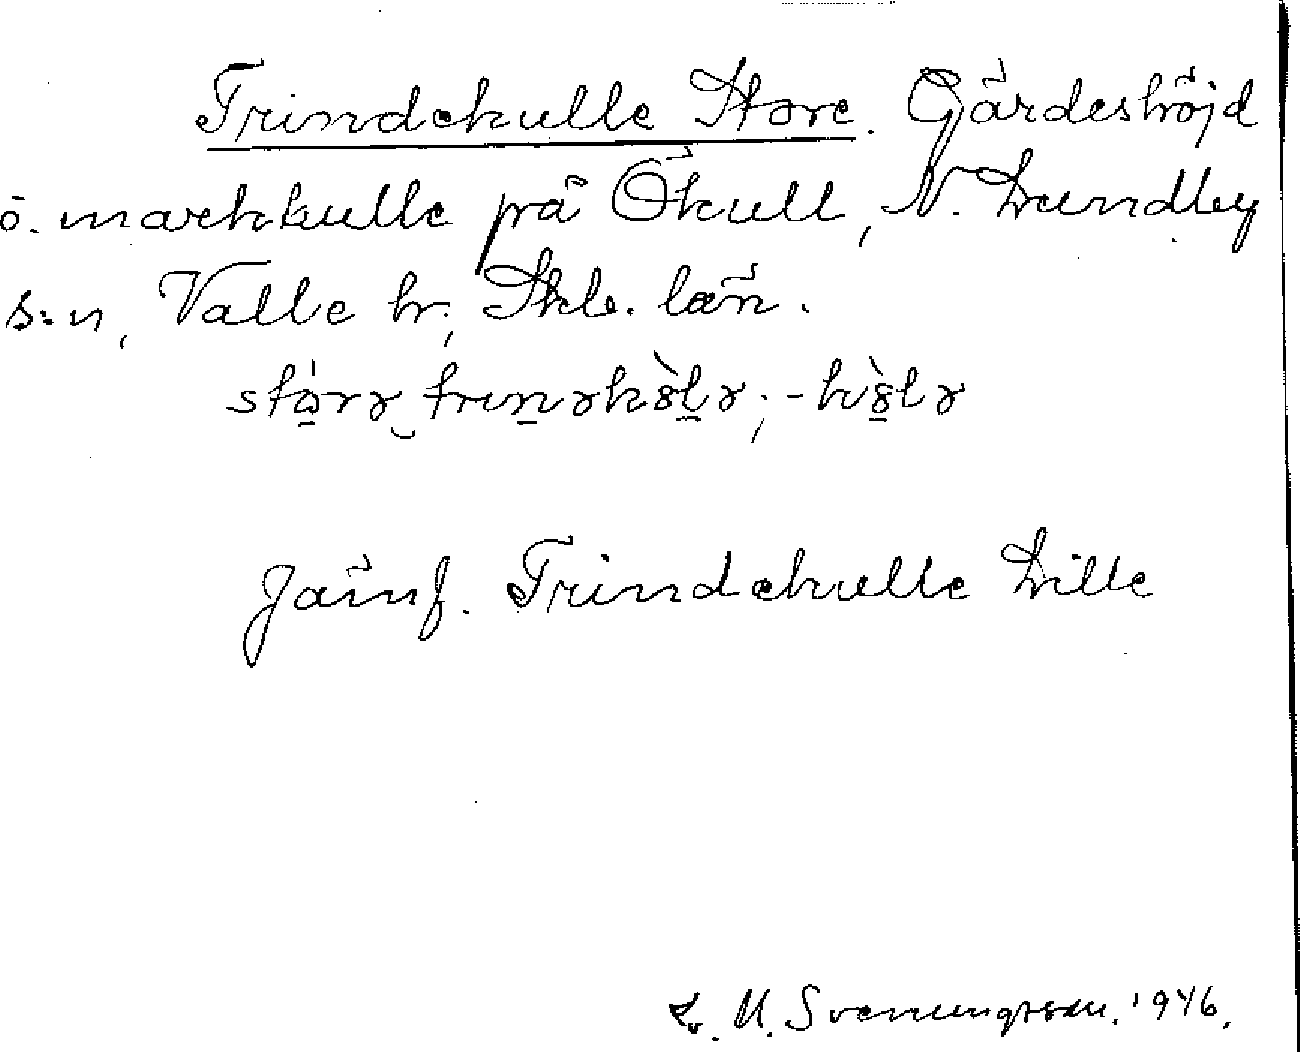 Trindekulle Store. Gärdeshöjd
o. markkulle på Ökull, N. Lundby
s:n, Valle hr, Skb. län.
Jämf. Trindekulle Lille
L. M. Svenungsson. 1946.